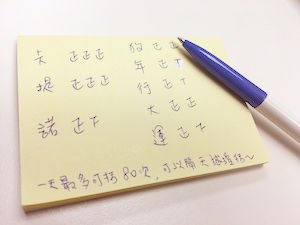 卡 正正正 做 正正
堤 正正正 年 正下
行 正正
諾 正下 大 正正
運 正下
一天最多可搭80次,可以隔天繼續搭~